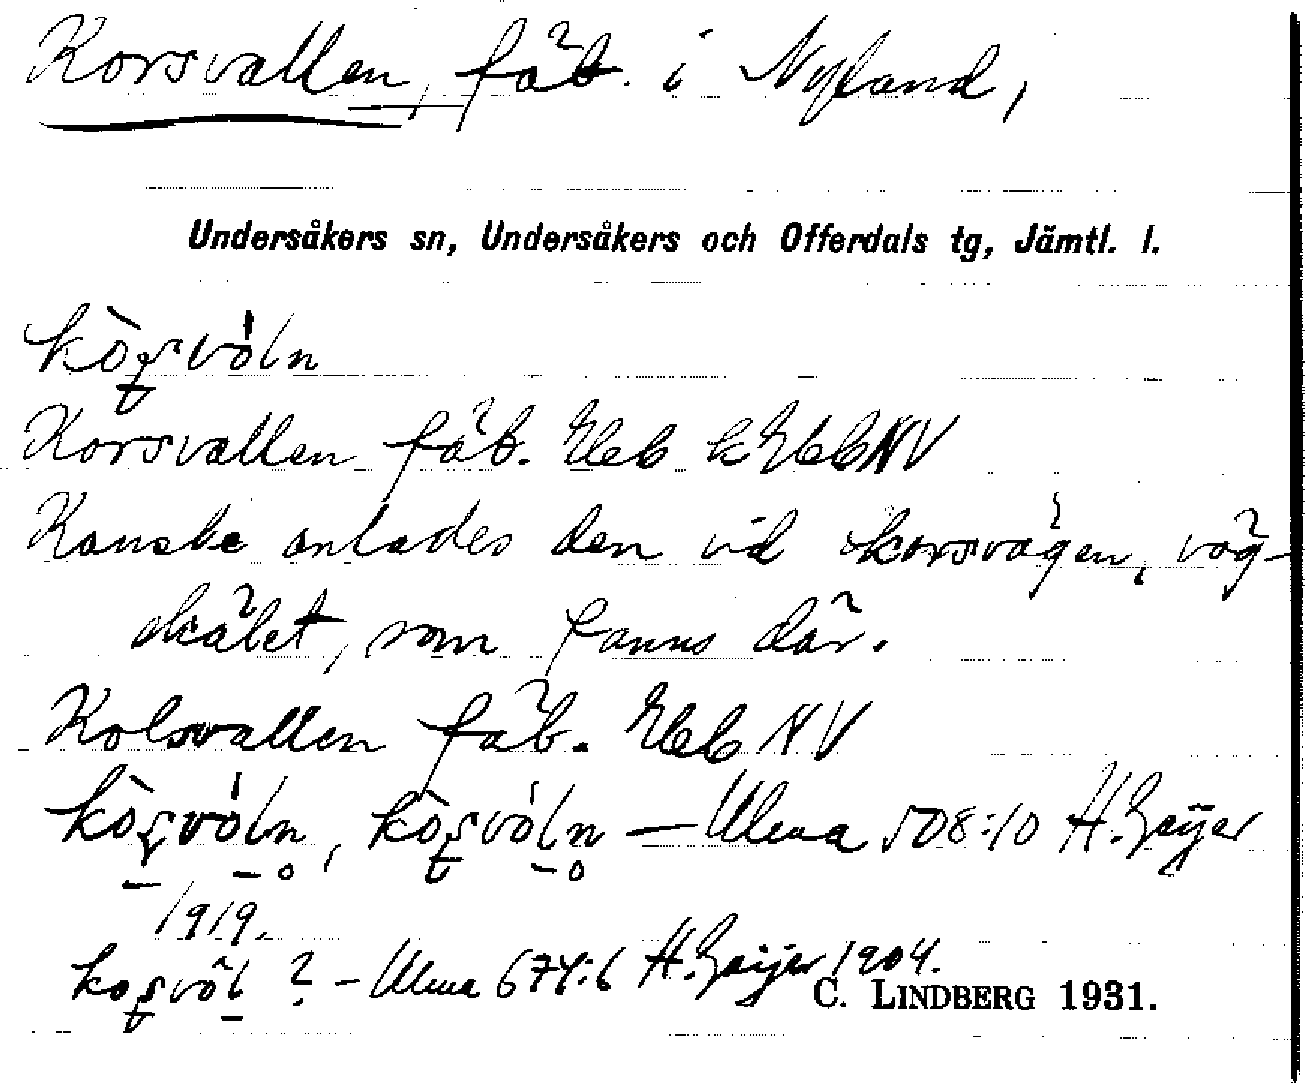 Korsvallen, fäb. i Nyland,
Undersåkers sn, Undersåkers och Offerdals tg, Jämtl. l.
Korsvallen fäb. Eleb kEkbNV
Kanske anlades den vid korsvägen, väg-
skälet, som fanns där.
Kolsvallen fäb. NV
— Ulma 508:10 H. Geijer
1919.
? – Ulma 674:6 H. Geijer 1904.
C. LINDBERG 1931.